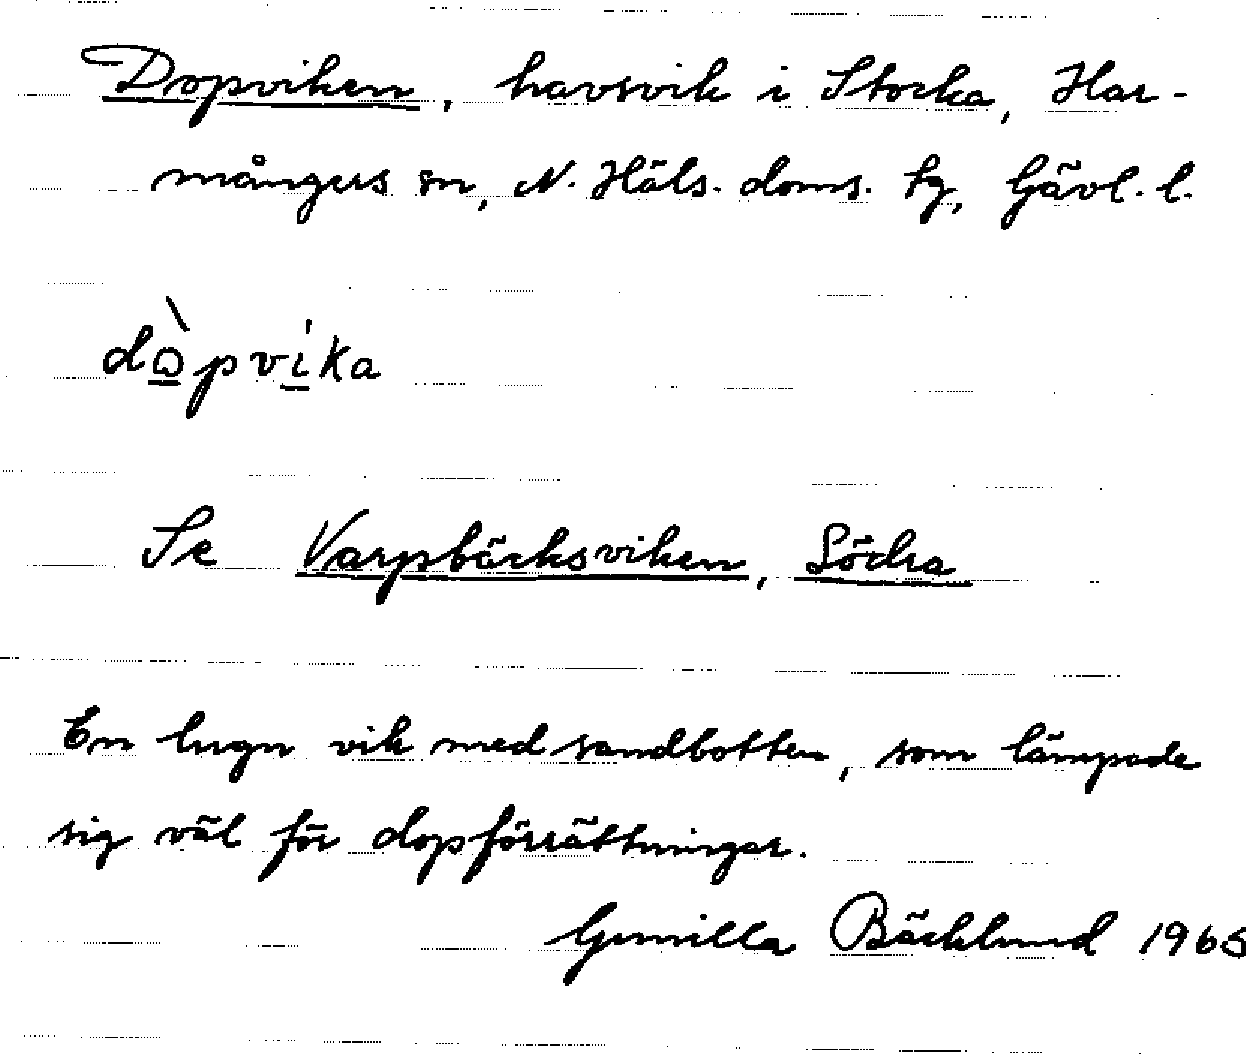 Dopviken, havsvik i Stocka, Har-
mångers sn, N. Häls. doms. tg, Gävl. l.
dò̱pvi̱ka
Se Varpbäcksviken, Södra
En lugn vik med sandbotten, som lämpade
sig väl för dopförrättningar.
Gunilla Bäcklund 1965